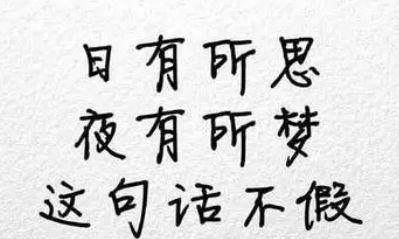 日有所思
夜有所梦
这句话不假